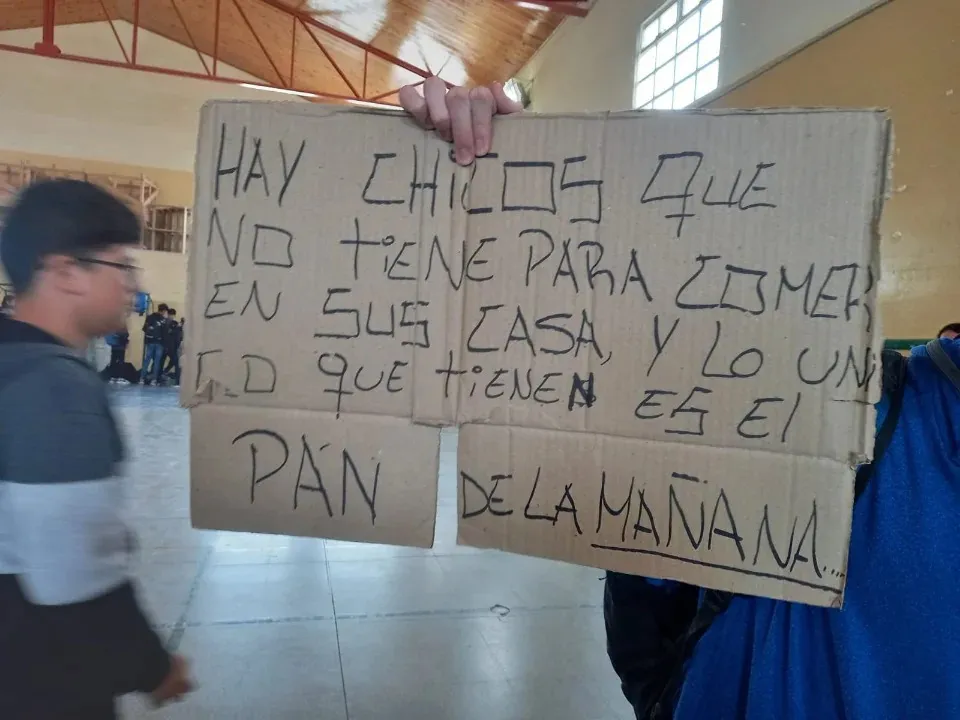 HAY CHICOS QUE
NO TIENE PARA COMER
EN SUS CASA, Y LO UNI
CO QUE TIENEN ES El
PAN DE LA MAÑANA....